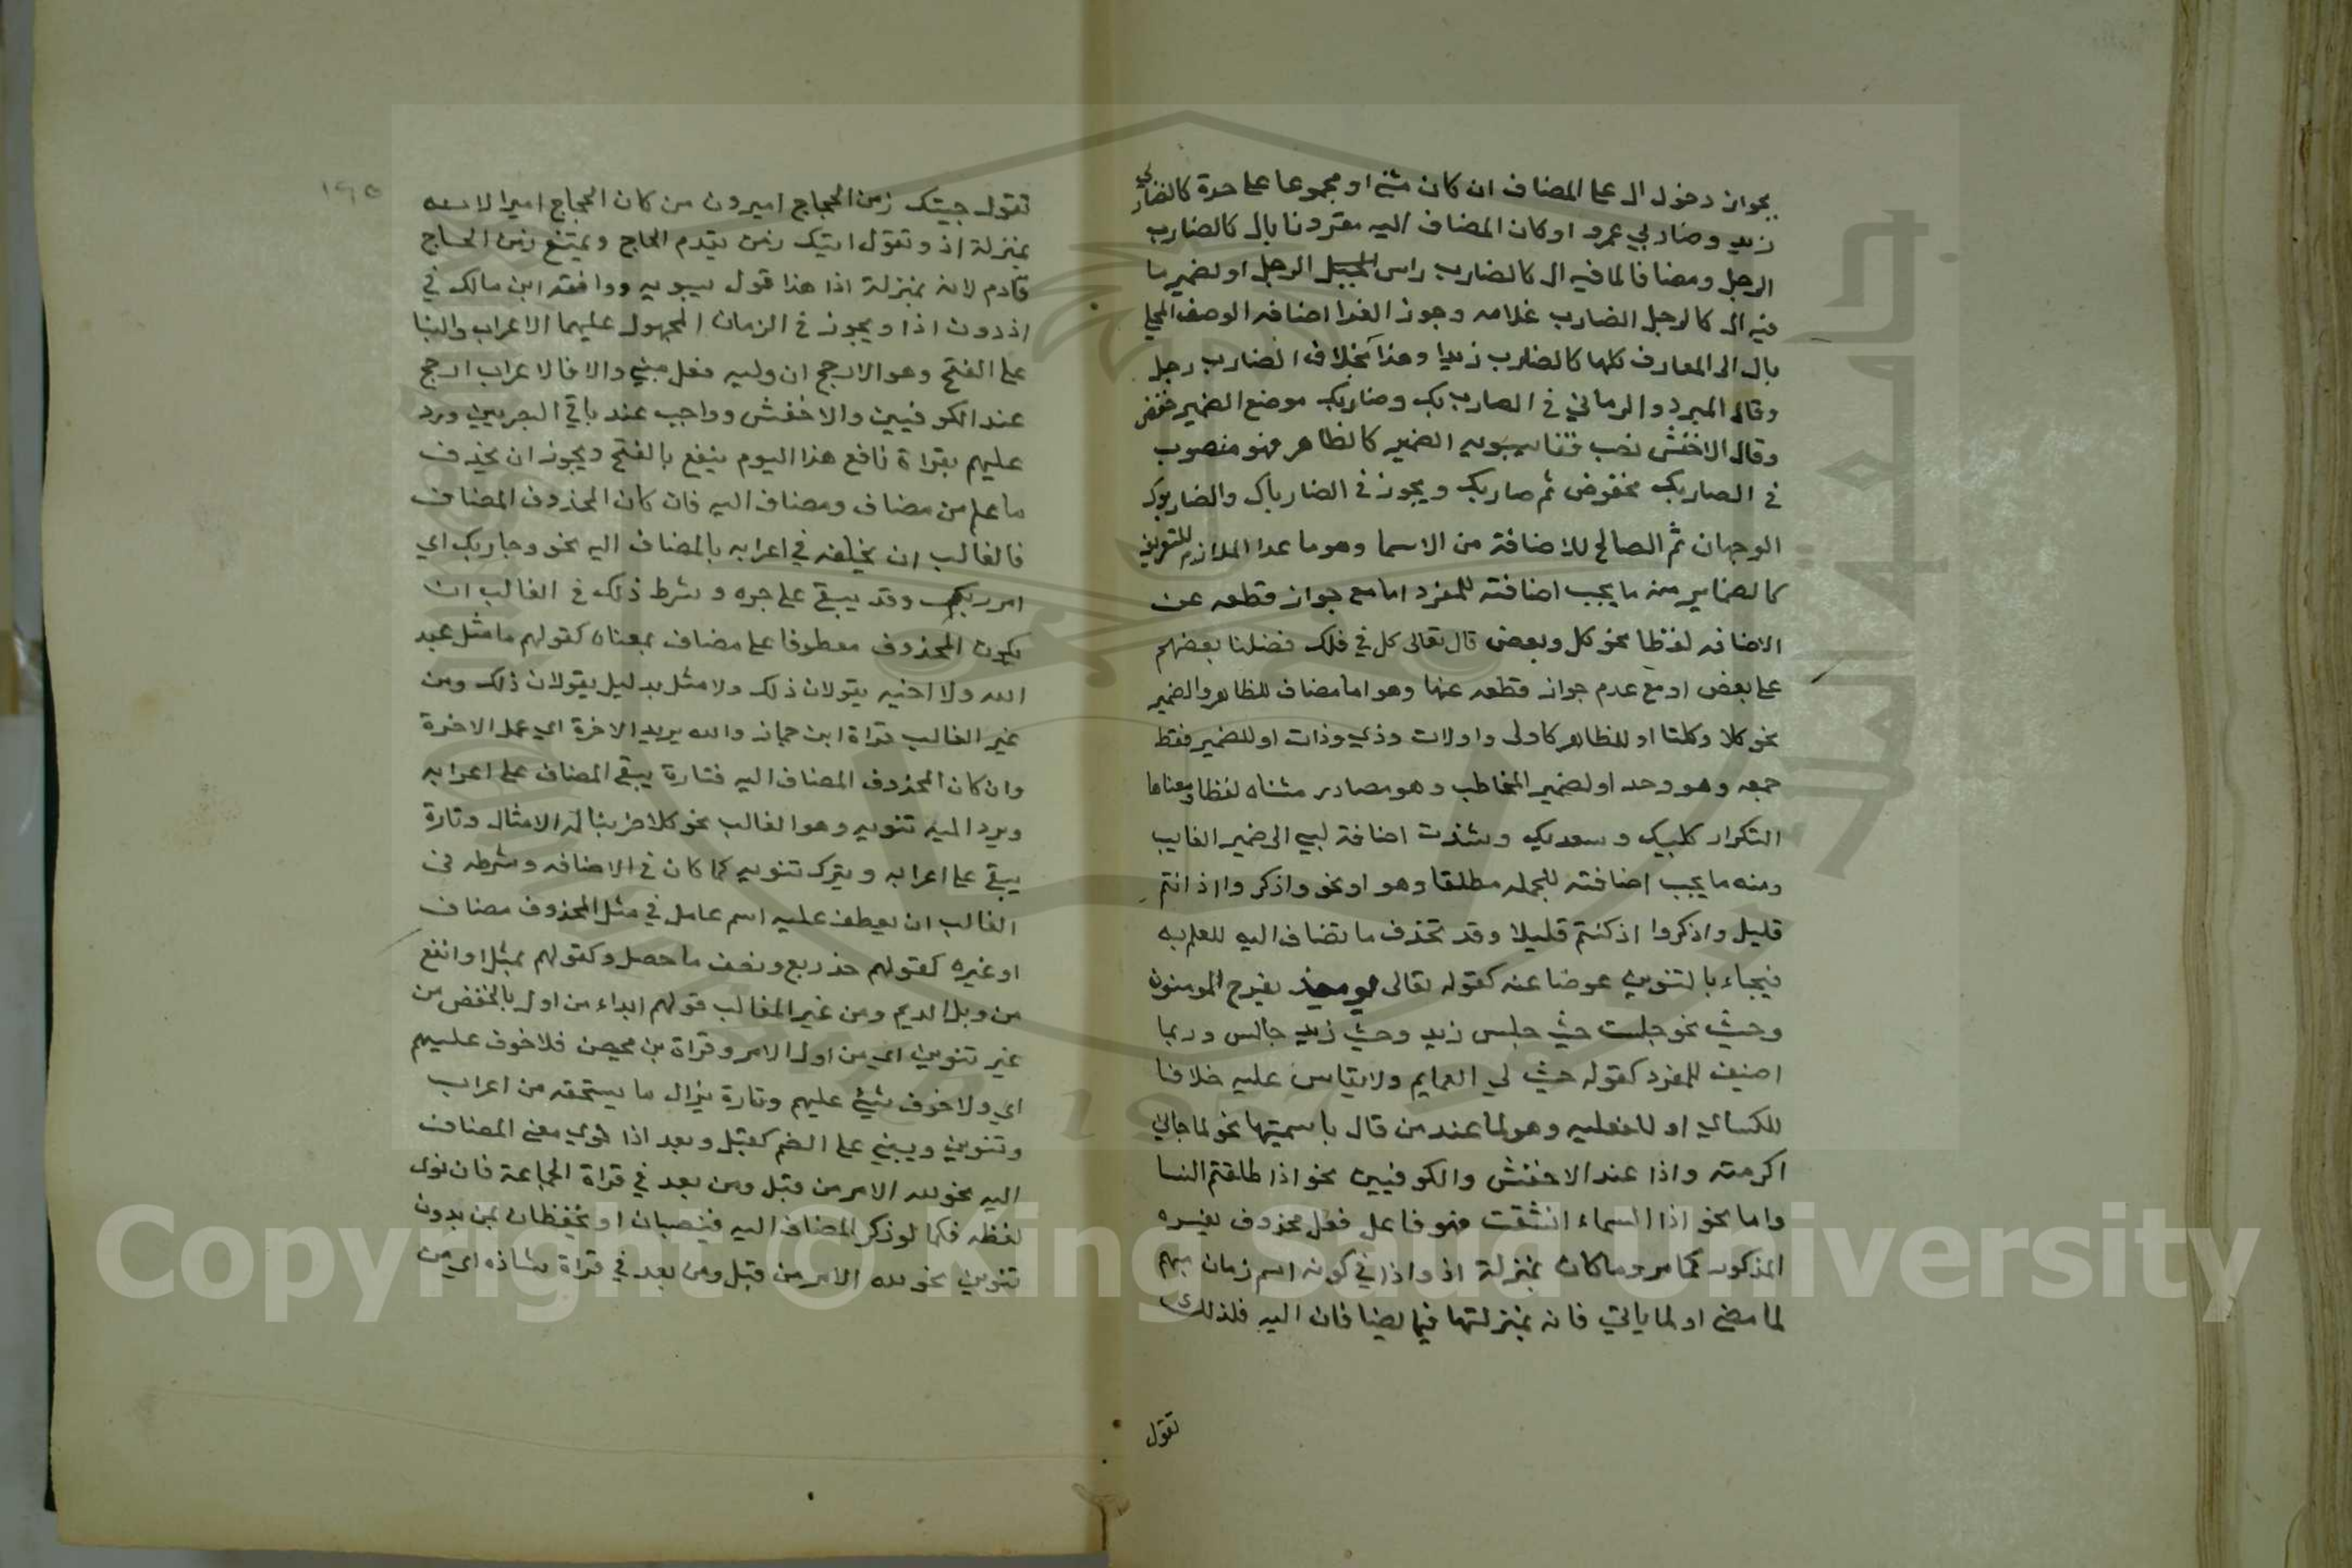 بجواز دخول ال على المضاف ان كان مثنى او مجموعا على حدة كالضاربي
زيد وضاربي عمرو او كان المضاف اليه مقرونا بال كالضارب
الرجل ومضافا لما فيه ال كالضارب راس الرجل او لضمير ما
فيه ال كالرجل الضارب غلامه وجوز الفرا اضافه الوصف المحلى
بال الى المعارف كلها كالضارب زيدا وهذا بخلاف الضارب رجل
وقال المبرد والرماني في الضاربك وضاربك موضع الضمير خفض
وقال الاخفش نصب وقال سيبويه الضمير كالظاهر فهو منصوب
في الضاربك مخفوض ثم ضاربك ويجوز في الضارباك والضاربوك
الوجهان ثم الصالح للاضافة من الاسما وهو ما عدا الملازم للتعريف
كالضماير منه ما يجب اضافته للمفرد اما مع جواز قطعه عن
الاضافه لفظا نحو كل وبعض قال تعالى كل في فلك فضلنا بعضهم
على بعض او مع عدم جواز قطعه عنها وهو اما مضاف للظاهر والضمير
نحو كلا وكلتا او للظاهر كاولى واولات وذي وذات او للضمير فقط
جمعه وهو وحد او لضمير المخاطب وهو مصادر مثناه لفظا ومعناها
التكرار كلبيك وسعديك وشذت اضافة لبي الى ضمير الغايب
ومنه ما يجب اضافته للجمله مطلقا وهو اذ نحو واذكروا اذ انتم
قليل واذكروا اذ كنتم قليلا وقد تحذف ما تضاف اليه للعلم به
فيجاء بالتنوين عوضا عنه كقوله تعالى يوميذ يفرح المومنون
وحيث نحو جلست حيث جلس زيد وحيث زيد جالس وربما
اضيف للمفرد كقوله حيث لي العمايم ولا يقاس عليه خلافا
للكساي او للفعليه وهو لما عند من قال باسميتها نحو لما جاني
اكرمته واذا عند الاخفش والكوفيين نحو اذا طلقتم النسا
واما نحو اذا السماء انشقت فهو فاعل فعل محذوف يفسره
المذكور كما مر وما كان بمنزلة اذ واذا في كونه اسم زمان مبهم
لما مضى او لما ياتي فانه بمنزلتهما فيما يضافان اليه فلذلك
تقول
١٩٥
تقول جيتك زمن الحجاج امير ومن من كان الحجاج امير الانه
بمنزلة اذ وتقول اتيك زمن يقدم الحاج ويمتنع زمن الحاج
قادم لانه بمنزلة اذا هذا قول سيبويه ووافقه ابن مالك في
اذ دون اذا ويجوز في الزمان المحمول عليهما الاعراب والبنا
على الفتح وهو الارجح ان وليه فعل مبني والا فالاعراب ارجح
عند الكوفيين والاخفش وواجب عند باقي البصريين ورد
عليهم بقراة نافع هذا اليوم ينفع بالفتح ويجوز ان يحذف
ما علم من مضاف ومضاف اليه فان كان المحذوف المضاف
فالغالب ان يخلفه في اعرابه بالمضاف اليه نحو وجا ربك اي
امر ربك وقد يبقى على جره وشرط ذلك في الغالب ان
يكون المحذوف معطوفا على مضاف بمعناه كقولهم ما مثل عبد
الله ولا اخيه يقولان ذلك ولا مثل بدليل يقولان ذلك ومن
غير الغالب قراة ابن جماز والله يريد الاخرة اي عمل الاخرة
وان كان المحذوف المضاف اليه فتارة يبقى المضاف على اعرابه
ويرد اليه تنوينه وهو الغالب نحو كلا ضربنا له الامثال وتارة
يبقى على اعرابه ويترك تنوينه كما كان في الاضافه وشرطه في
الغالب ان يعطف عليه اسم عامل في مثل المحذوف مضاف
او غيره كقولهم خذ ربع ونصف ما حصل وكقولهم بمثل او انفع
من وبل الديم ومن غير الغالب قولهم ابداء من اول بالخفض من
غير تنوين اي من اول الامر وقراة بن محيصن فلا خوف عليهم
اي ولا خوف شيئ عليهم وتارة يزال ما يستحقه من اعراب
وتنوين ويبني على الضم كقبل وبعد اذا نوي معنى المضاف
اليه نحو لله الامر من قبل ومن بعد في قراة الجماعة فان نوى
لفظه فكما لو ذكر المضاف اليه فينصبان او يخفضان بمن بدون
تنوين نحو لله الامر من قبل ومن بعد في قراة شاذه اي من
Copyright © King Saud University